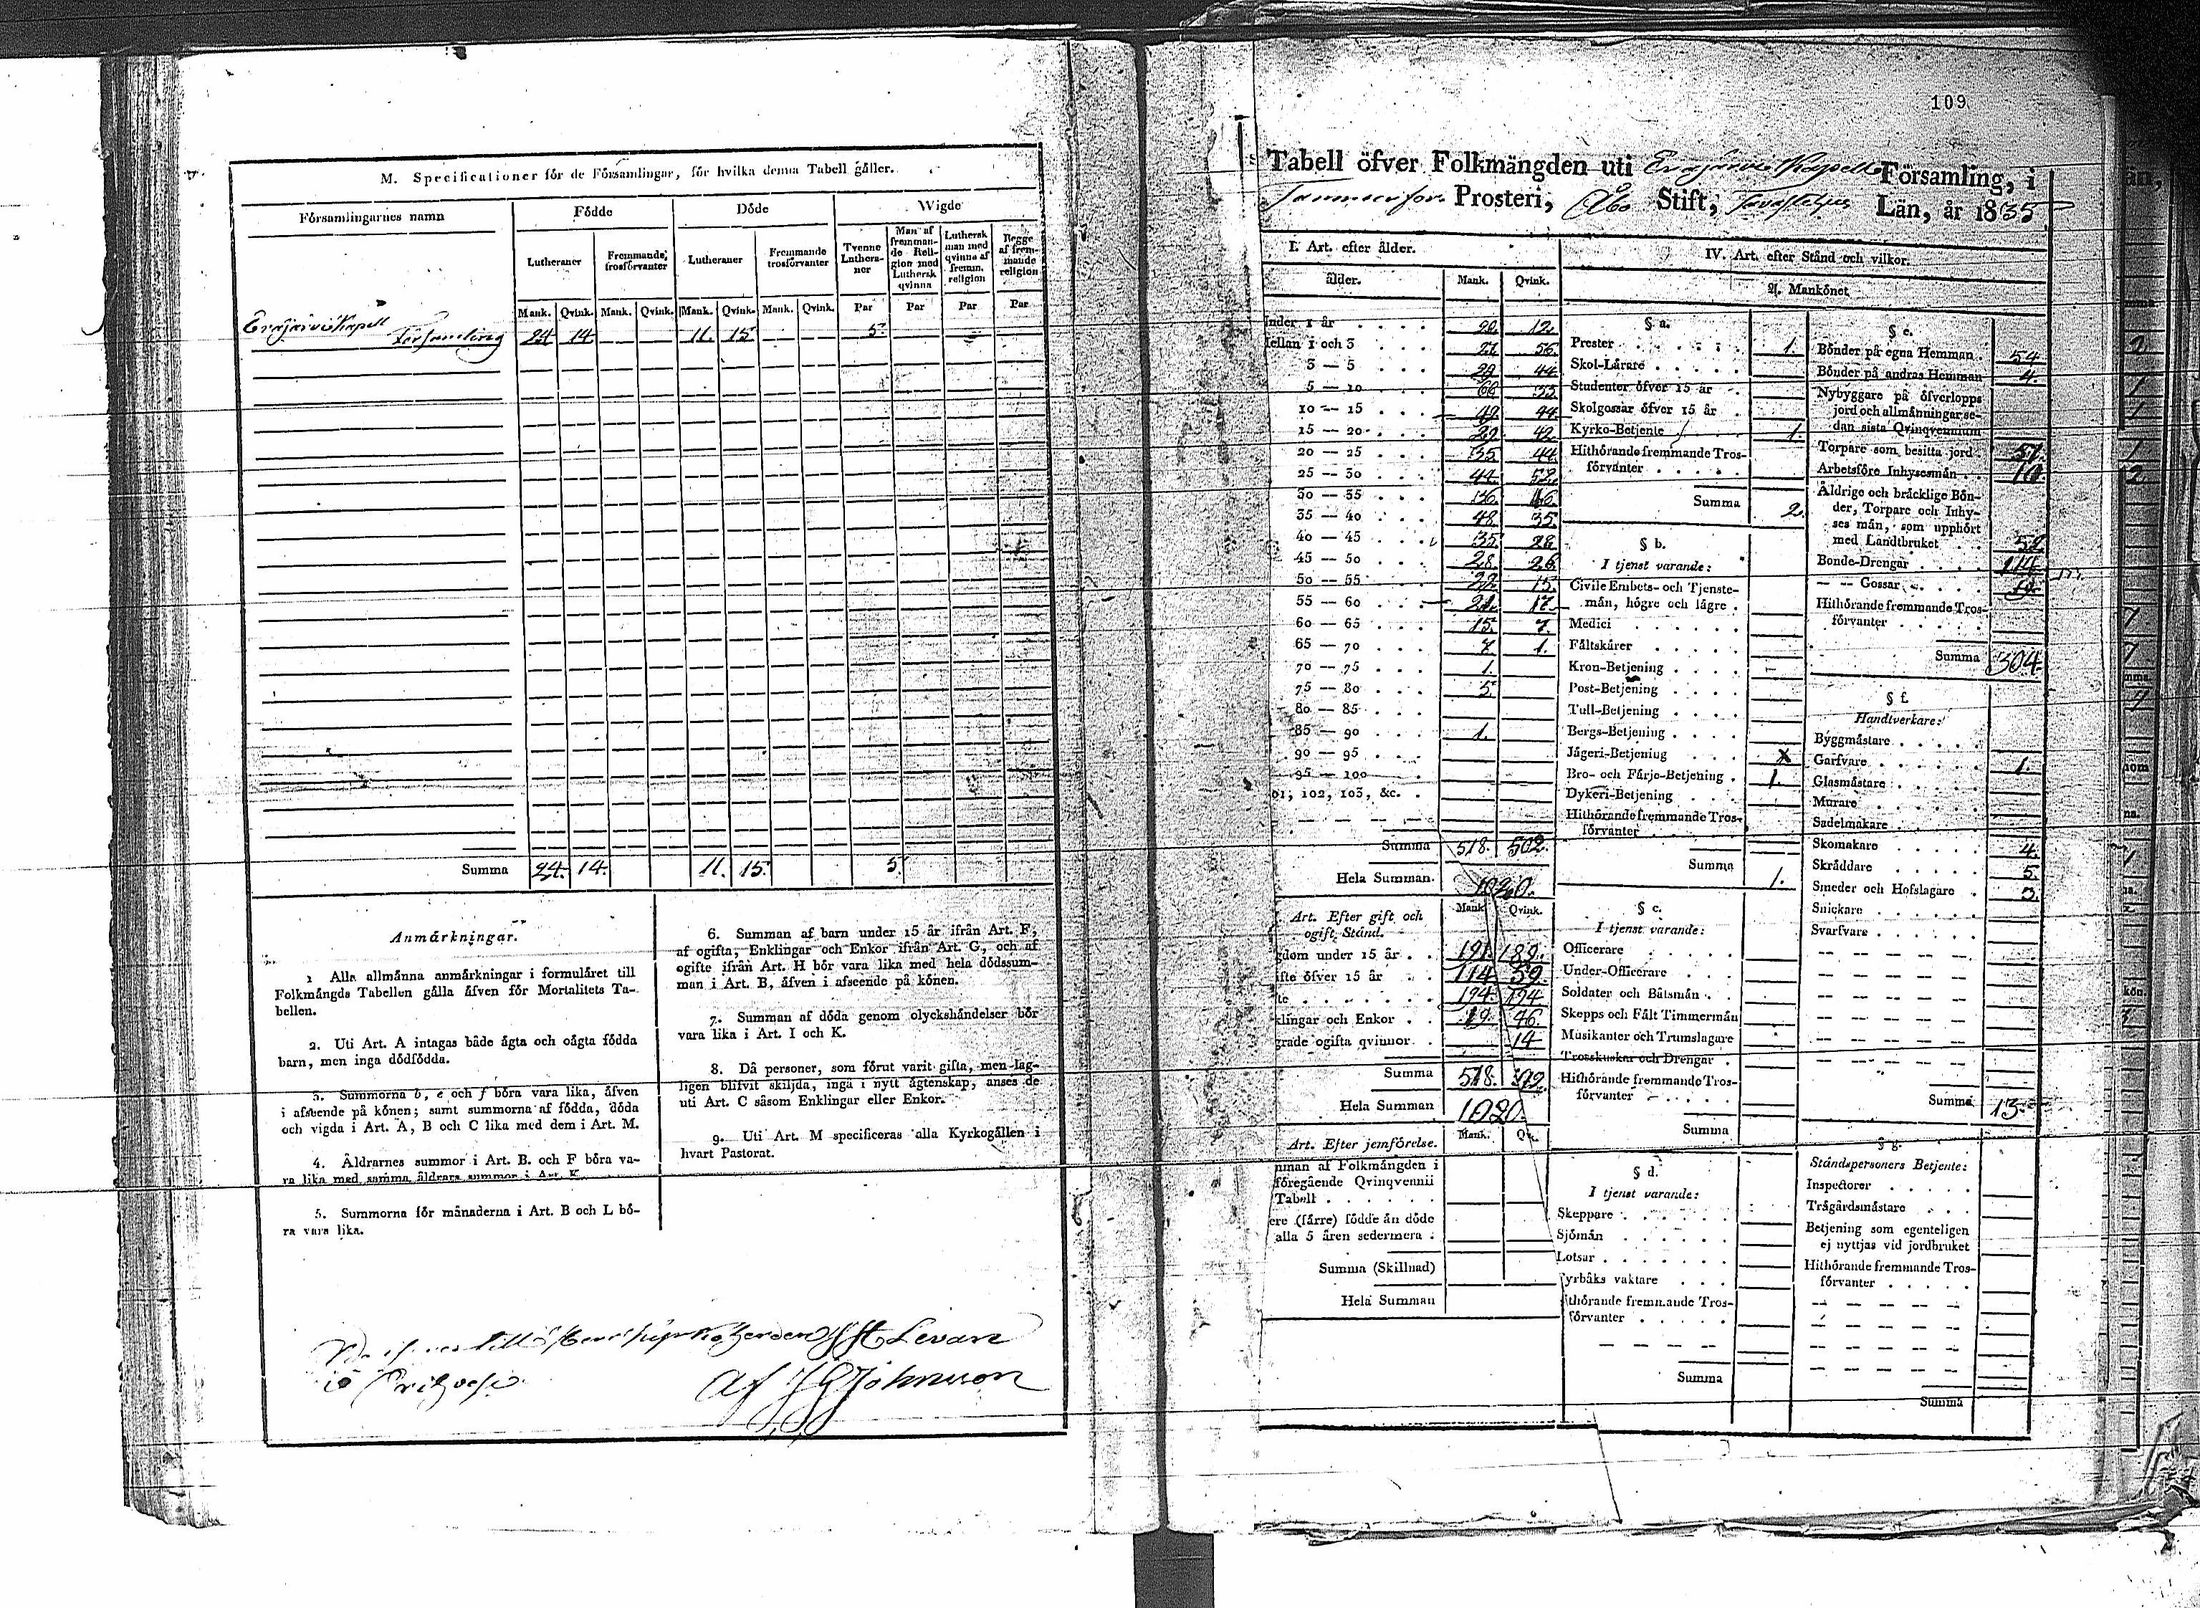 M. Specificationer för de Församlingar, för hvilka denna Tabell gäller.
Församlingarnes namn
Födde
Döde
Wigde
Lutheraner
Fremmande trosförvanter
Lutheraner
Fremmande trosförvanter
Tvenne Lutheraner
Man af fremmande Religion med Luthersk qvinna
Luthersk man med qvinna af fremm. religion
Begge af fremmande religion
Mank. Qvink. Mank. Qvink. Mank. Qvink. Mank. Qvink. Par Par Par Par
Erajärvi Kapell Församling 24 14 11. 15 5
Summa 24. 14. 11. 15. 5.
Anmärkningar.
1 Alla allmänna anmärkningar i formuläret till
Folkmängds Tabellen gälla äfven för Mortalitets Ta-
bellen.
2. Uti Art. A intagas både ägta och oägta födda
barn, men inga dödfödda.
3. Summorna b, e och f böra vara lika, äfven
i afseende på könen; samt summorna af födda, döda
och vigda i Art. A, B och C lika med dem i Art. M.
4. Åldrarnes summor i Art. B. och F böra va-
ra lika med samma åldrars summor i Art. K.
5. Summorna för månaderna i Art. B och L bö-
ra vara lika.
6. Summan af barn under 15 år ifrån Art. F,
af ogifta, Enklingar och Enkor ifrån Art. G, och af
ogifte ifrån Art. H bör vara lika med hela dödssum-
man i Art. B, äfven i afseende på könen.
7. Summan af döda genom olyckshändelser bör
vara lika i Art. I och K.
8. Då personer, som förut varit gifta, men lag-
ligen blifvit skiljda, ingå i nytt ägtenskap, anses de
uti Art. C såsom Enklingar eller Enkor.
9. Uti Art. M specificeras alla Kyrkogällen i
hvart Pastorat.
Levan
i Orihvesi
af J G Johnsson
109
Tabell öfver Folkmängden uti Erajärvi Kapell Församling, i
Tammerfors Prosteri, Åbo Stift, Tavastehus Län, år 1835
I. Art. efter ålder.
ålder. Mank. Qvink.
nder 1 år 20. 12.
ellan 1 och 3 27. 56.
3 — 5 29. 44.
5 — 10 66. 33.
10 — 15 49. 44.
15 — 20 29. 42.
20 — 25 35. 44.
25 — 30 44. 52.
30 — 35 36. 46.
35 — 40 48. 35.
40 — 45 35. 28.
45 — 50 28. 26.
50 — 55 22. 15.
55 — 60 21. 17.
60 — 65 15. 7.
65 — 70 7. 1.
70 — 75 1.
75 — 80 5.
80 — 85
85 — 90 1.
90 — 95
95 — 100
01, 102, 103, &c.
Summa 518. 502.
Hela Summan. 1020.
Art. Efter gift och
ogift Stånd. Mank. Qvink.
gdom under 15 år 191. 189.
ifte öfver 15 år 114 59.
te 194. 194
klingar och Enkor 19. 46.
grade ogifta qvinnor 14
Summa 518. 502.
Hela Summan 1020.
Art. Efter jemförelse. Mank. Qv.
mman af Folkmängden i
föregående Qvinqvennii
Tabell
ere (färre) födde än döde
alla 5 åren sedermera
Summa (Skillnad)
Hela Summan
IV. Art. efter Stånd och vilkor.
A. Mankönet
§ a.
Prester 1.
Skol-Lärare
Studenter öfver 15 år
Skolgossar öfver 15 år
Kyrko-Betjente 1.
Hithörande fremmande Tros-
förvanter
Summa 2.
§ b.
I tjenst varande:
Civile Embets- och Tjenste-
män, högre och lägre
Medici
Fältskärer
Kron-Betjening
Post-Betjening
Tull-Betjening
Bergs-Betjening
Jägeri-Betjening
Bro- och Färje-Betjening 1.
Dykeri-Betjening
Hithörande fremmande Tros-
förvanter
Summa 1.
§ c.
I tjenst varande:
Officerare
Under-Officerare
Soldater och Båtsmän
Skepps och Fält Timmermän
Musikanter och Trumslagare
Trosskuskar och Drengar
Hithörande fremmande Tros-
förvanter
Summa
§ d.
I tjenst varande:
Skeppare
Sjömän
Lotsar
Fyrbåks vaktare
thörande fremmande Tros-
förvanter
Summa
§ e.
Bönder på egna Hemman 54
Bönder på andras Hemman 4.
Nybyggare på öfverlopps
jord och allmänningar se-
dan sista Qvinqvennium
Torpare som besitta jord
Arbetsföre Inhysesmän
Åldrige och bräcklige Bön-
der, Torpare och Inhy-
ses män, som upphört
med Landtbruket 52
Bonde-Drengar 114
— — Gossar
Hithörande fremmande Tros-
förvanter
Summa 304.
§ f.
Handtverkare:
Byggmästare
Garfvare 1.
Glasmästare
Murare
Sadelmakare
Skomakare 4.
Skräddare 5.
Smeder och Hofslagare 3.
Snickare
Svarfvare
Summa 13.
§ g.
Ståndspersoners Betjente:
Inspectorer
Trägårdsmästare
Betjening som egenteligen
ej nyttjas vid jordbruket
Hithörande fremmande Tros-
förvanter
Summa